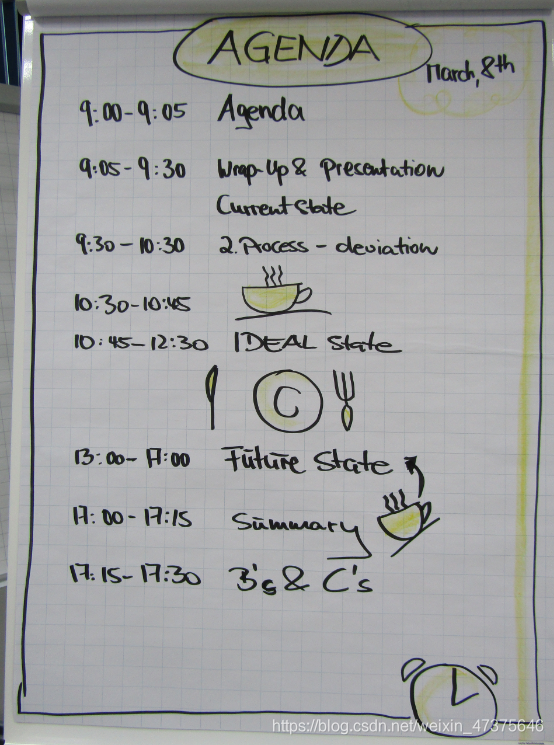 AGENDA
March, 8th
9:00-9:05 Agenda
9:05-9:30 Wrap-Up & Presentation
Current State
9:30-10:30 2. Process - deviation
10:30-10:45
10:45-12:30 IDEAL State
C
13:00-17:00 Future State
17:00-17:15 Summary
17:15-17:30 B's & C's
https://blog.csdn.net/weixin_47375646